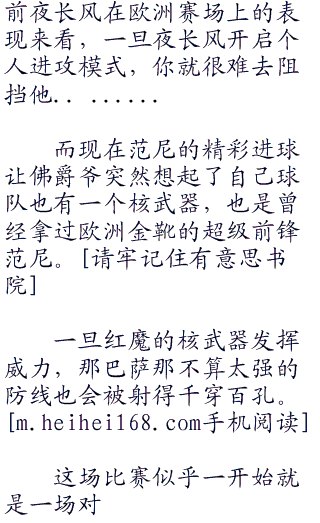 前夜长风在欧洲赛场上的表
现来看，一旦夜长风开启个
人进攻模式，你就很难去阻
挡他.. ......
而现在范尼的精彩进球
让佛爵爷突然想起了自己球
队也有一个核武器，也是曾
经拿过欧洲金靴的超级前锋
范尼。[请牢记住有意思书
院]
一旦红魔的核武器发挥
威力，那巴萨那不算太强的
防线也会被射得千穿百孔。
[m.heihei168.com手机阅读]
这场比赛似乎一开始就
是一场对